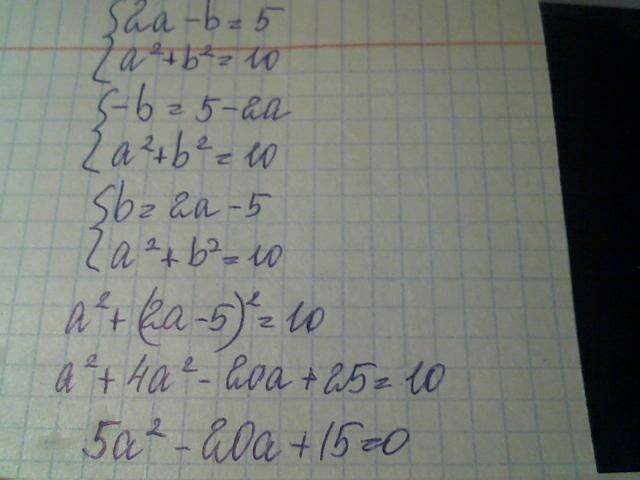 {2a - b = 5
{a² + b² = 10
{-b = 5 - 2a
{a² + b² = 10
{b = 2a - 5
{a² + b² = 10
a² + (2a - 5)² = 10
a² + 4a² - 20a + 25 = 10
5a² - 20a + 15 = 0